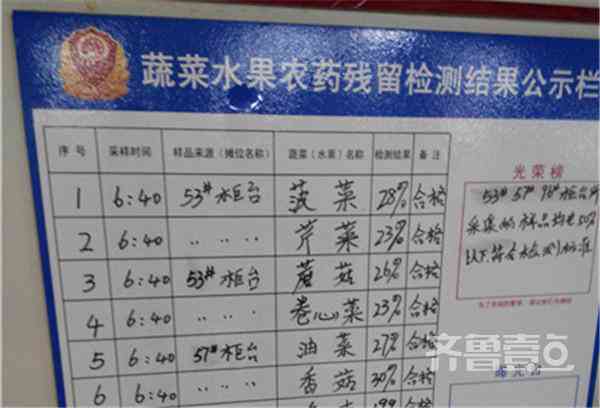 蔬菜水果农药残留检测结果公示栏
序号 采样时间 样品来源（摊位名称） 蔬菜（水果）名称 检测结果 备注
1 6:40 53#水柜台 菠菜 28% 合格
2 6:40 〃 〃 〃 芹菜 23% 合格
3 6:40 53#水柜台 蘑菇 26% 合格
4 6:40 〃 〃 〃 卷心菜 23% 合格
5 6:40 57#水柜台 油菜 27% 合格
6 6:40 〃 〃 〃 香菇 30% 合格
光荣榜
53# 57# 96#柜台所
采集的样品均在50%
以下符合检测标准
齐鲁壹点